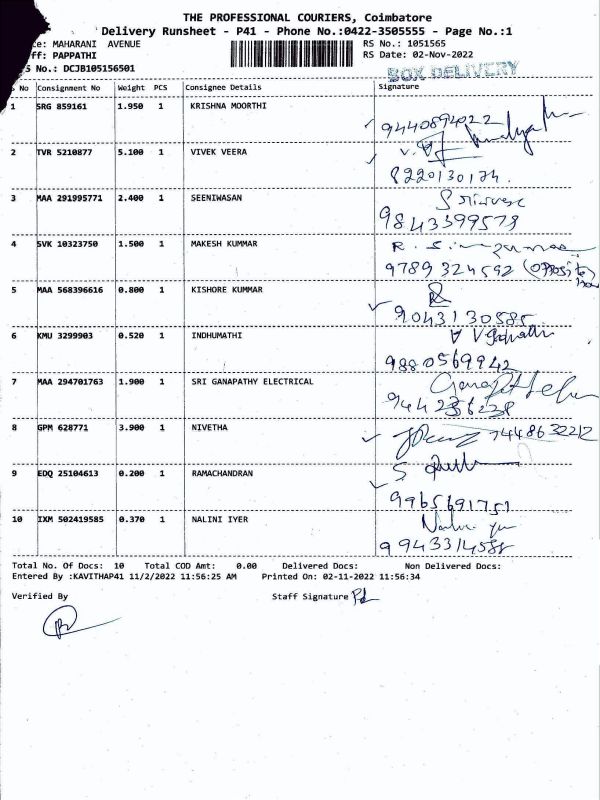 THE PROFESSIONAL COURIERS, Coimbatore
Delivery Runsheet - P41 - Phone No.:0422-3505555 - Page No.:1
ce: MAHARANI AVENUE RS No.: 1051565
ff: PAPPATHI RS Date: 02-Nov-2022
S No.: DCJB105156501 BOX DELIVERY
S No Consignment No Weight PCS Consignee Details Signature
1 SRG 859161 1.950 1 KRISHNA MOORTHI
9440894022
2 TVR 5210877 5.100 1 VIVEK VEERA
8220130174.
3 MAA 291995771 2.400 1 SEENIWASAN
9843399579
4 SVK 10323750 1.500 1 MAKESH KUMMAR
9789324592 (opposite
5 MAA 568396616 0.800 1 KISHORE KUMMAR
9043130585
6 KMU 3299903 0.520 1 INDHUMATHI
9880569942
7 MAA 294701763 1.900 1 SRI GANAPATHY ELECTRICAL
8 GPM 628771 3.900 1 NIVETHA 7448632212
9 EDQ 25104613 0.200 1 RAMACHANDRAN
9965691751
10 IXM 502419585 0.370 1 NALINI IYER
9943314588
Total No. Of Docs: 10 Total COD Amt: 0.00 Delivered Docs: Non Delivered Docs:
Entered By :KAVITHAP41 11/2/2022 11:56:25 AM Printed On: 02-11-2022 11:56:34
Verified By Staff Signature